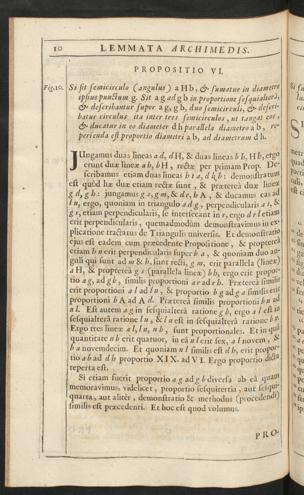 10 LEMMATA ARCHIMEDIS.
PROPOSITIO VI.
Fig. 10. Si sit semicirculo (angulus) a H b, & sumatur in diametro
ipsius punctum g. Sit a g ad g b in proportione sesquialtera,
& describantur super a g, g b, duo semicirculi, & descri-
batur circulus ita inter tres semicirculos, ut tangat eos,
& ducatur in eo diameter d h parallela diametro a b, re-
perienda est proportio diametri a b, ad diametrum d h.
Jungamus duas lineas a d, d H, & duas lineas b h, H b, ergo
erunt duæ lineæ a b, b H, rectæ per primam Prop. De-
scribamus etiam duas lineas
est quod hæ duæ etiam rectæ sunt, & præterea duæ lineæ
g d, g h: jungamus & ducamus eas ad
ergo, quoniam in triangulo a d g, perpendicularis a i, &
g r, etiam perpendicularis, se intersecant in r, ergo d r l etiam
erit perpendicularis, quemadmodum demonstravimus in ex-
plicatione tractatus de Triangulis universis. Et demonstratio
ejus est eadem cum præcedente Propositione, & propterea
etiam b u erit perpendicularis super b a, & quoniam duo an-
guli qui sunt ad m & b, sunt recti, g m, erit parallela (lineæ)
a H, & propterea g s (parallela lineæ) b h, ergo erit propor-
tio a g, ad g b, similis proportioni a r ad r h. Præterea similis
erit proportioni a l ad l u, & proportio b g ad g a similis erit
proportioni b A ad A d. Præterea similis proportioni b u ad
u l. Est autem a g in sesquialtera ratione g b, ergo a l est in
sesquialtera ratione l u, & l u est in sesquialtera ratione b u.
Ergo tres lineæ a l, l u, u b, sunt proportionales. Et in qua
quantitate u b erit quatuor, in ea u l erit sex, a l novem, &
b a novemdecim. Et quoniam u l similis est d h, erit propor-
tio a b ad d h proportio XIX. ad VI. Ergo proportio dicta
reperta est.
Si etiam fuerit proportio a g ad g b diversa ab ea quam
memoravimus, videlicet, proportio sesquitertia, aut sesqui-
quarta, aut aliter, demonstratio & methodus (procedendi)
similis est præcedenti. Et hoc est quod volumus.
PRO-